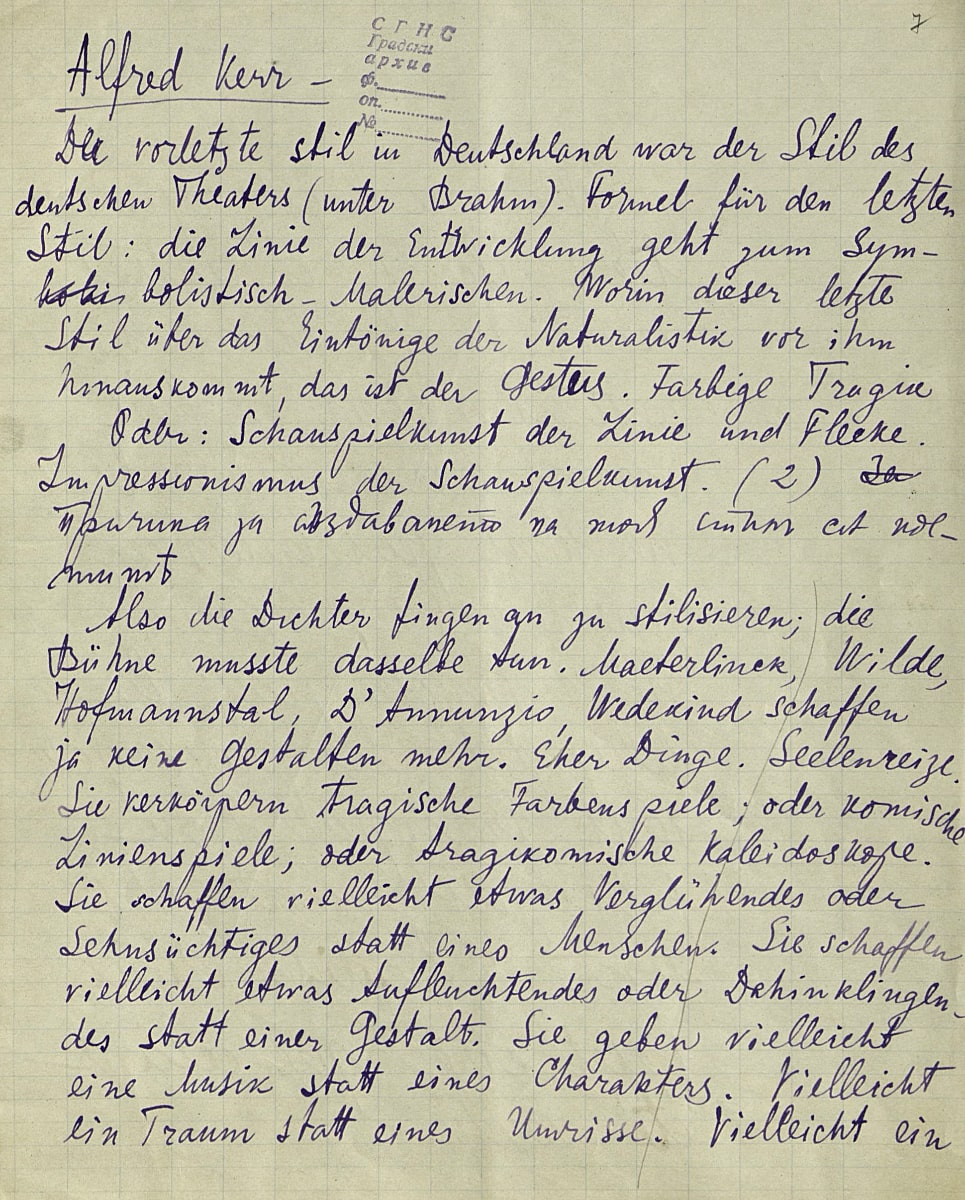 7
С Г Н С
Градски
архив
ф.
оп.
№
Alfred Kerr –
Der vorletzte stil in Deutschland war der Stil des
deutschen Theaters (unter Brahm). Formel für den letzten
Stil: die Linie der Entwicklung geht zum Sym-
bolistisch – Malerischen. Worin dieser letzte
Stil über das Eintönige der Naturalistik vor ihm
hinauskommt, das ist der Gestus. Farbige Tragik
Oder: Schauspielkunst der Linie und Flecke.
Impressionismus der Schauspielkunst. (2) За
причина за създаването на тоя стил
Also die Dichter fingen an zu stilisieren; die
Bühne musste dasselbe tun. Maeterlinck, Wilde,
Hofmannstal, D'Annunzio, Wedekind schaffen
ja keine Gestalten mehr. Eher Dinge. Seelenreize.
Sie verkörpern tragische Farbenspiele; oder komische
Linienspiele; oder tragikomische Kaleidoskope.
Sie schaffen vielleicht etwas Verglühendes oder
Sehnsüchtiges statt eines Menschen. Sie schaffen
vielleicht etwas Aufleuchtendes oder Dahinklingen-
des statt einer Gestalt. Sie geben vielleicht
eine Musik statt eines Charakters. Vielleicht
ein Traum statt eines Umrisse. Vielleicht ein